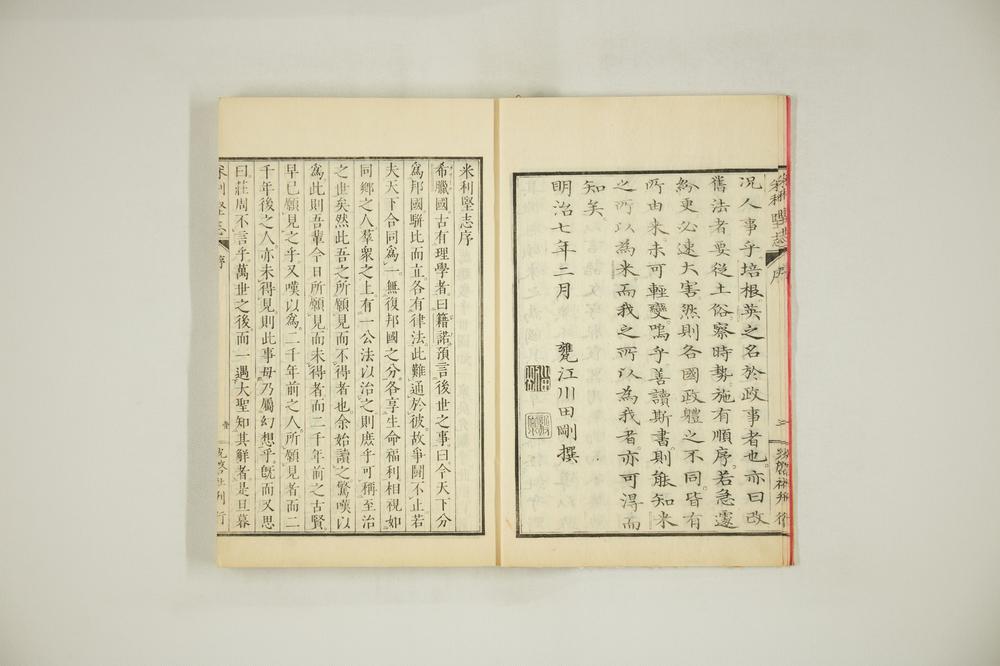 況人事乎培根英之名於政事者也亦曰改
舊法者要從土俗察時勢施有順序若急遽
紛更必速大害然則各國政體之不同皆有
所由來未可輕變嗚乎善讀斯書則能知米
之所以為米而我之所以為我者亦可得而
知矣
明治七年二月
甕江川田剛撰
米利堅志序
希臘國古有理學者曰籍諾預言後世之事曰今天下分
為邦國駢比而立各有律法此難通於彼故爭鬪不止若
夫天下合同為一無復邦國之分各享生命福利相視如
同鄉之人羣衆之上有一公法以治之則庶乎可稱至治
之世矣然此吾之所願見而不得者也余始讀之驚嘆以
為此則吾輩今日所願見而未得者而二千年前之古賢
早已願見之乎又嘆以為二千年前之人所願見者而二
千年後之人亦未得見則此事毋乃屬幻想乎旣而又思
曰莊周不言乎萬世之後而一遇大聖知其解者是旦暮